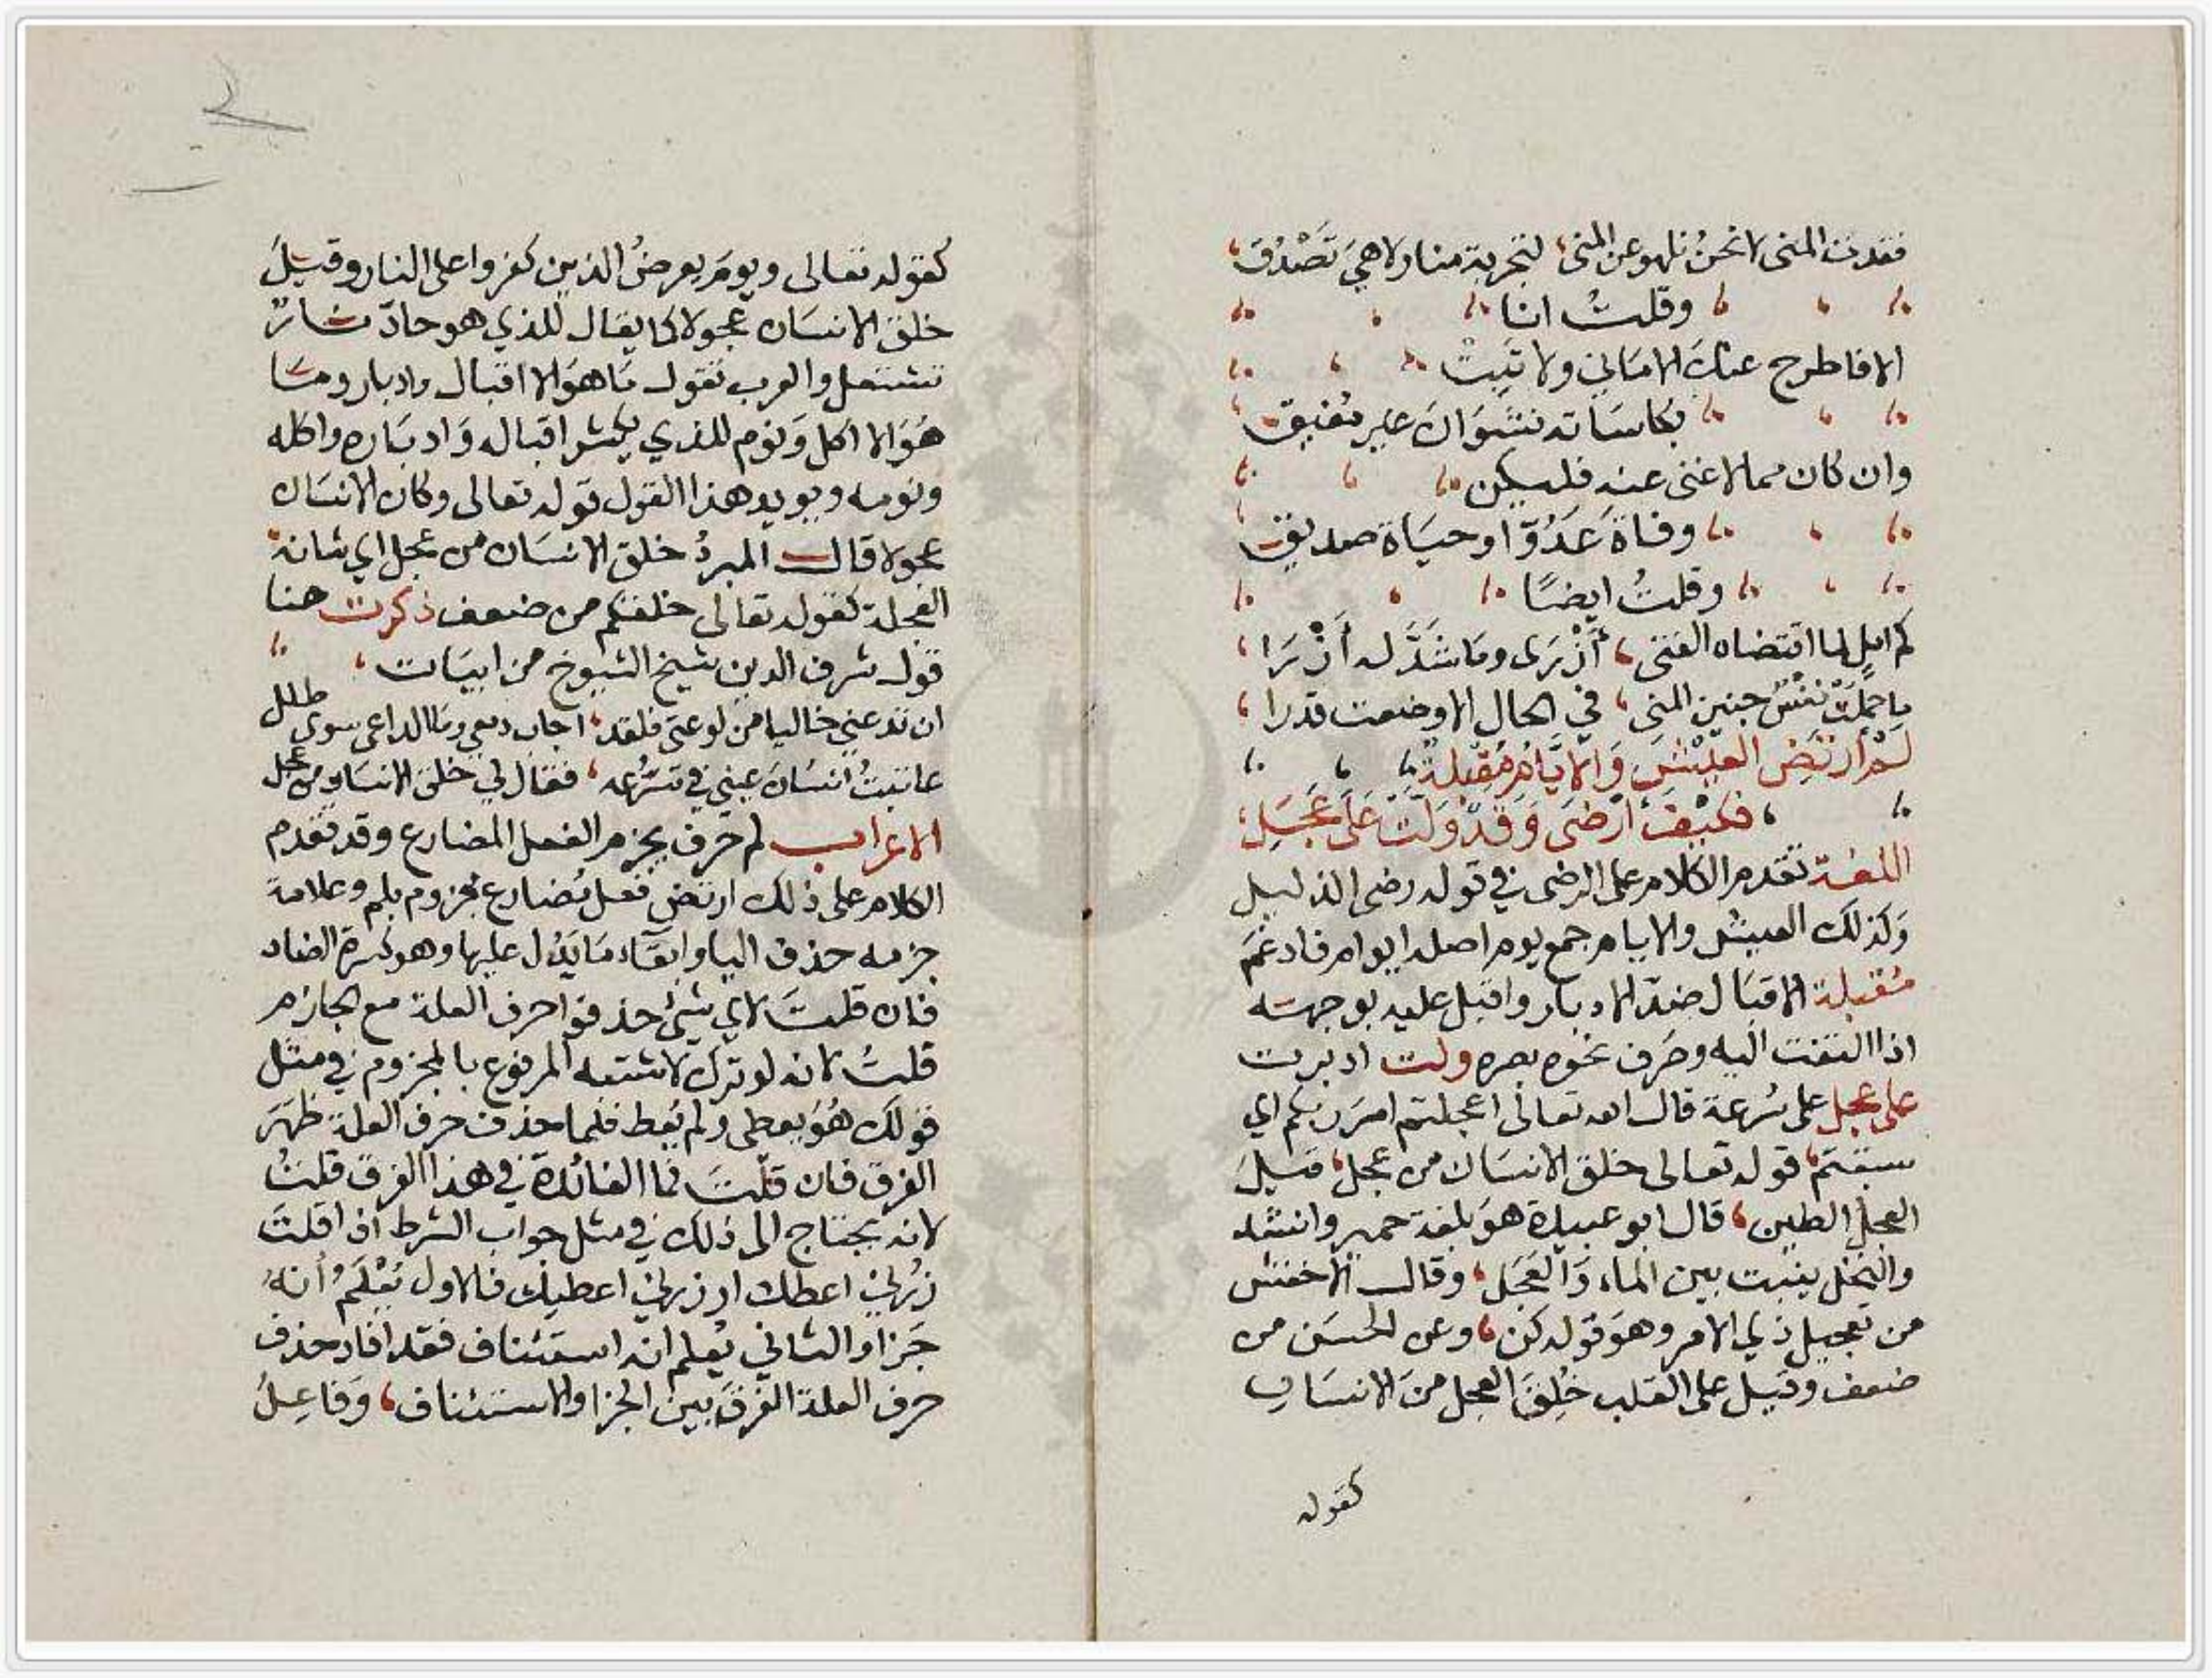 فقدت المنى لا نحن نلهو عن المنى، لتجربة منا ولا هي تَصْدُق،
وقلتُ انا
الا فاطرح عنك الاماني ولا تَبِتْ
بكاسَاته نشوَانَ غير مُفيق
وان كان مما لا غنى عنه فليكن
وفاةَ عَدُوّ او حيَاة صديق
وقلتُ ايضًا
كم امل لما اقتضاه الفتى، أزْرَى وما شَدَّ له أزْرَا،
ما حملت نفس جنين المنى، في الحال الا وضعت قدرا،
لَمْ أرْتَضِ العَيْشَ وَالأيّامُ مُقْبِلةٌ
، فكيْفَ أرْضَى وَقَدْ وَلَّتْ عَلَى عَجَلِ،
اللغة تقدم الكلام على الرضى في قوله رضى الذليل
وَكذلك العيش والايام جمع يوم اصله ايوام فادغمَ
مُقبلة الاقبَال ضدّ الادبار واقبل عليه بوجهه
اذا التفت اليه وصَرف نحوه بصره ولت ادبرت
على عجل على سُرعة قال الله تعالى اعجلتم امرَ ربكم اي
سبقتم، قوله تعالى خلق الانسَان من عجل، قيلَ
العجل الطين، قال ابو عبيدة هوَ بلغة حمير وانشد
والنخل ينبت بين الماء وَالعَجَل، وقال الاخفش
من تعجيل ذي الامر وهوَ قوله كن، وعن الحسَن من
ضعف وقيل على القلب خُلِقَ العجل منَ الانسَان
كقوله
كقوله تعالى ويومَ يعرضُ الذين كفروا على النار وقيلَ
خلق الانسَان عجولا كما يقال للذي هو حادّ نارٌ
تشتعل والعرب تقول مَا هوَ الا اقبال وادبار ومَا
هُوَ الا اكل وَنوم للذي يكثر اقباله وَادبَاره واكله
ونومه ويويد هذا القول قوله تعالى وكان الانسَان
عجولا قال المبردُ خلق الانسَان من عجل اي شانهُ
العجلة كقوله تعالى خلقكم من ضعف ذكرت هنا
قول شرف الدين شيخ الشيوخ من ابيَات،
ان تدعني خاليا من لوعتي فلقد، اجاب دمعي وما الداعي سوى طلل
عاتبتُ انسَان عيني في تسَرّعه، فقال لي خلق الانسَان من عجل
الاعراب لم حَرف يجزم الفعل المضارع وقد تقدم
الكلام على ذلك ارتض فعل مُضارع مجزوم بلم وعلامة
جزمه حذف اليا وابقآء مَا يَدُل عليها وهو كسرة الضاد
فان قلتَ لاي شيئ حذفوا حرف العلة مع الجازم
قلتُ لانه لو ترك لاشتبه المرفوع بالمجزوم في مثل
قولك هُوَ يعطى ولم يُعط فلما حذف حرف العلة ظهَرَ
الفرق فان قلتَ فما الفائدة في هذا الفرق قلتُ
لانه يحتاج الى ذلك في مثل جواب الشرط اذا قلتَ
زُرني اعطك او زرني اعطيك فالاول يُعْلَمُ أنهُ
جَزا والثاني يُعلم انه استئناف فقد افاد حذف
حرف العلة الفرقَ بين الجزا والاستئناف، وَفاعِلُ